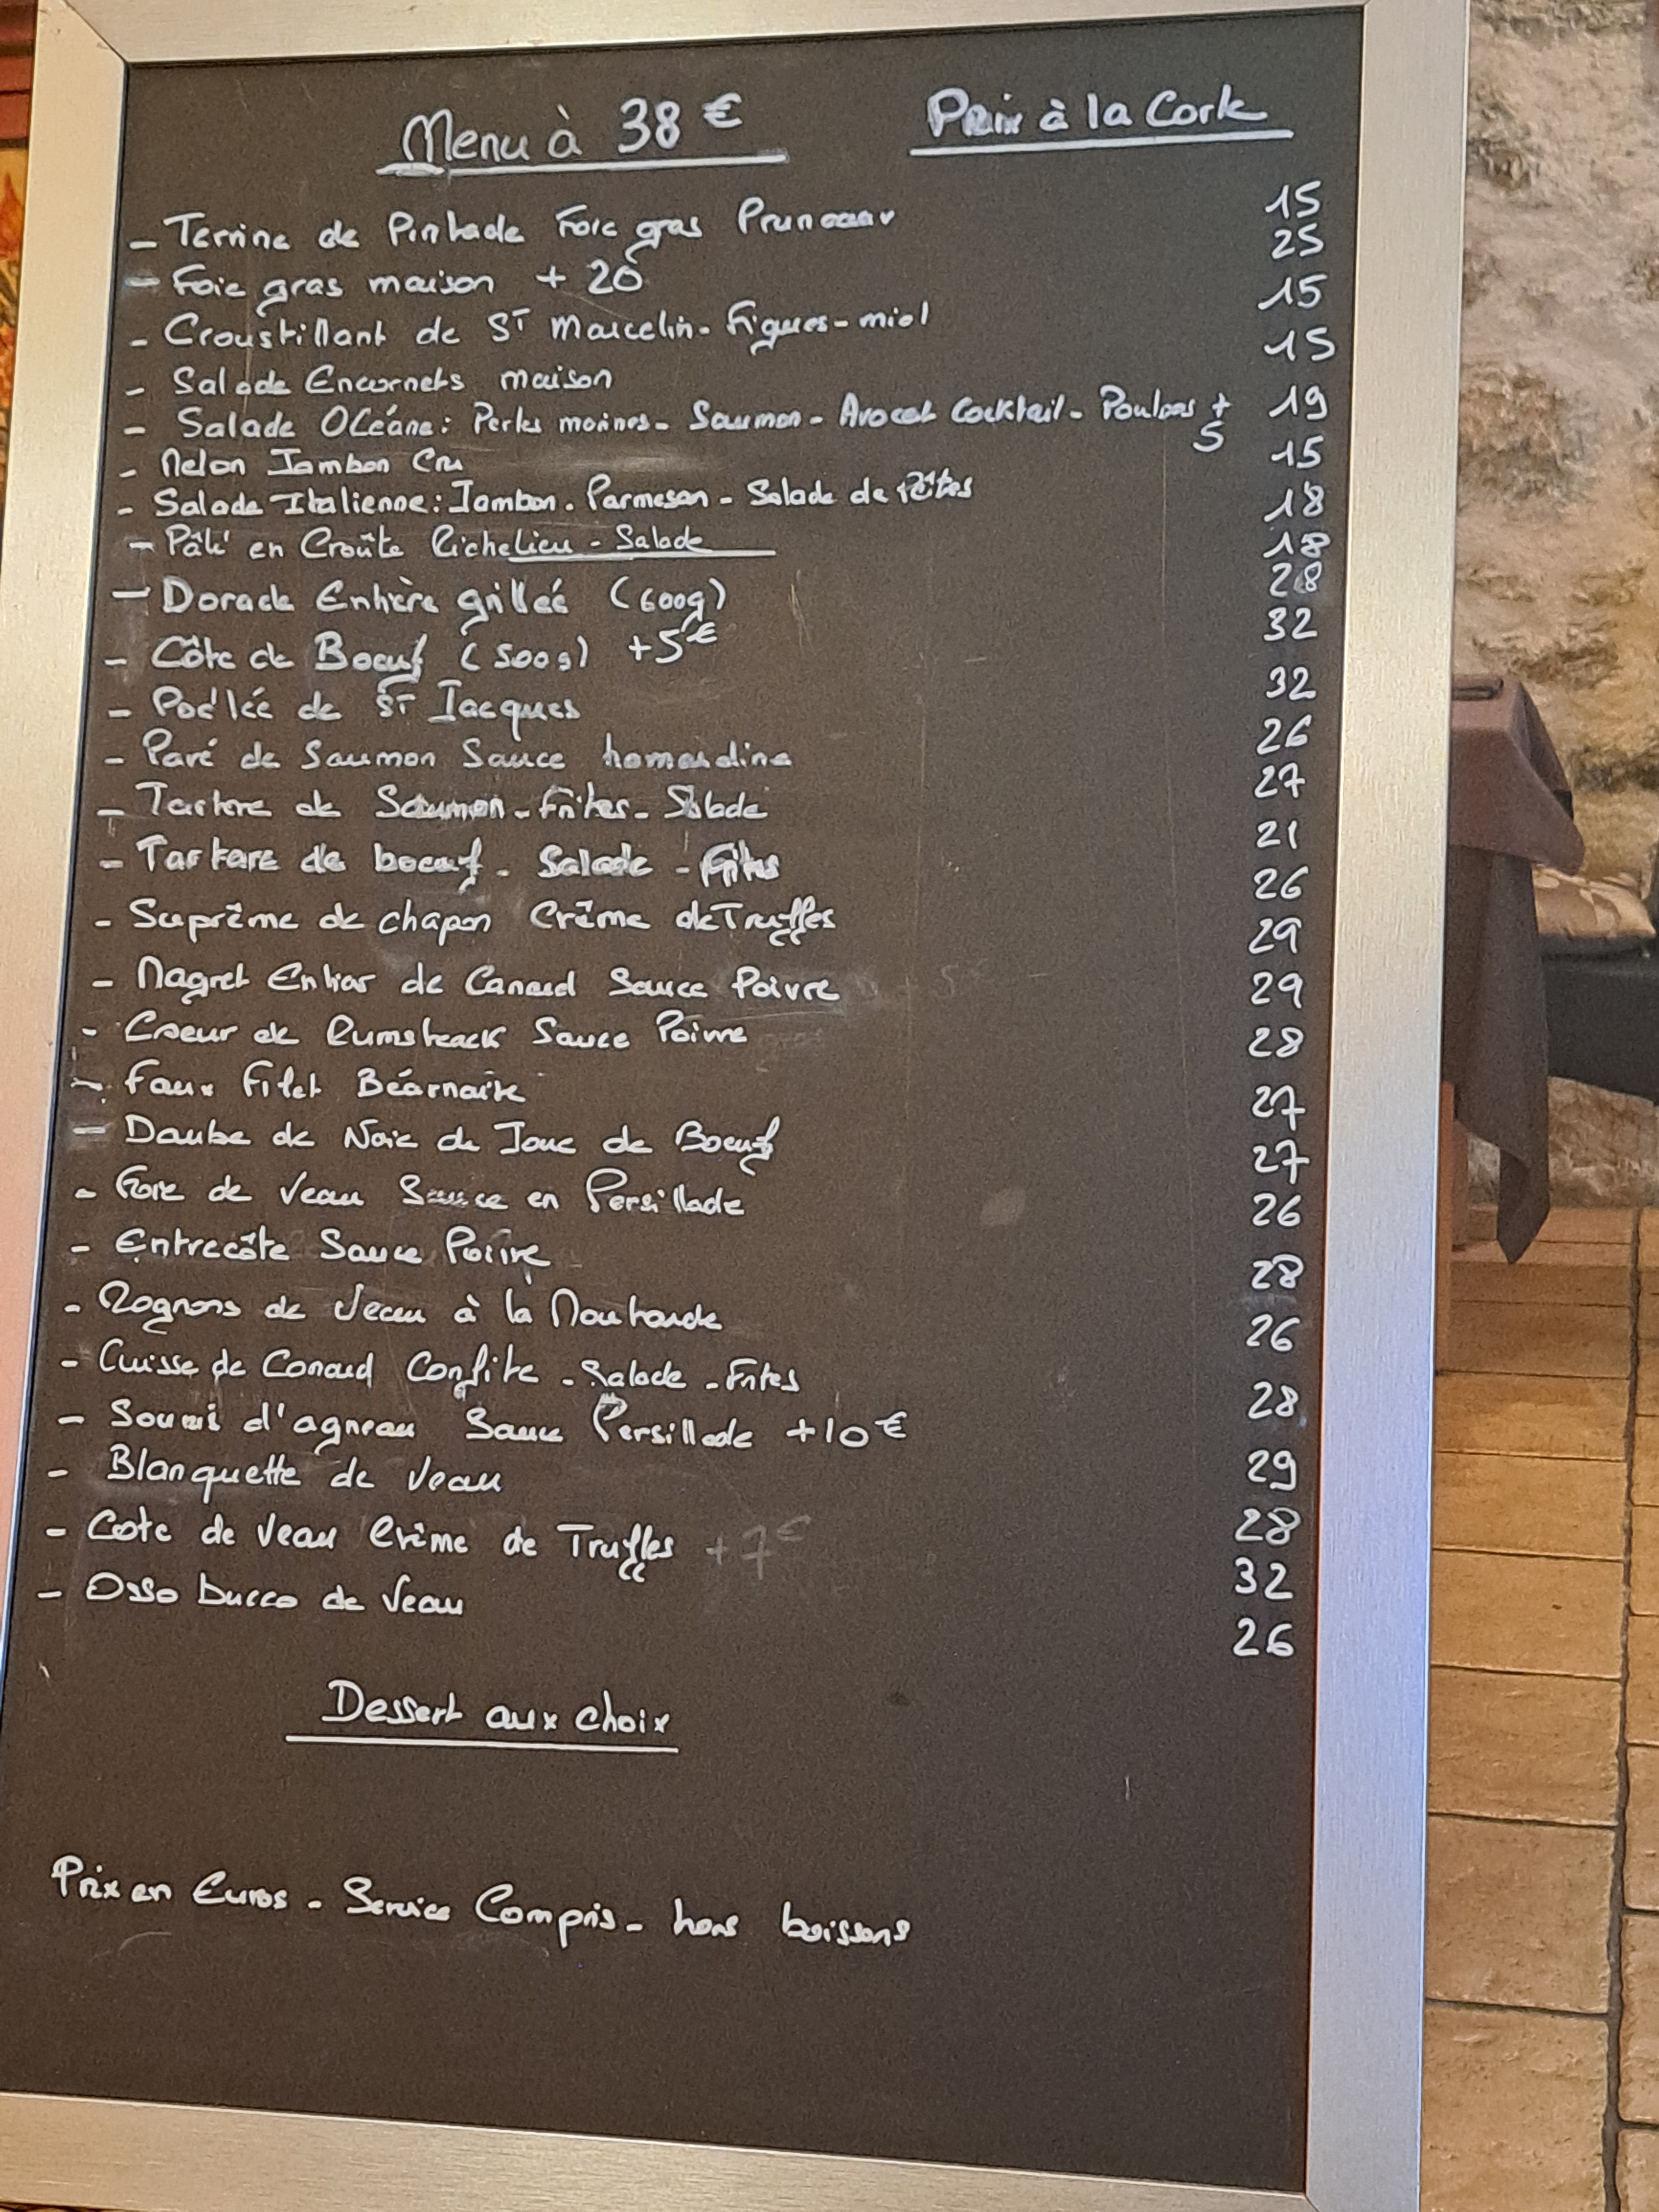 Menu à 38 € Prix à la Carte
- Terrine de Pintade Foie gras Pruneaux 15
- Foie gras maison + 20 25
- Croustillant de ST Marcelin - Figues - miel 15
- Salade Encornets maison 15
- Salade Océane: Perles marines - Saumon - Avocat Cocktail - Poulpes + 5 19
- Melon Jambon Cru 15
- Salade Italienne: Jambon. Parmesan - Salade de Pâtes 18
- Pâté en Croûte Richelieu - Salade 18
- Dorade Entière grillée (600g) 28
- Côte de Boeuf (500g) +5€ 32
- Poêlée de ST Jacques 32
- Pavé de Saumon Sauce homardine 26
- Tartare de Saumon - Frites - Salade 27
- Tartare de boeuf - Salade - Frites 21
- Suprême de chapon Crème de Truffes 26
- Magret Entier de Canard Sauce Poivre 29
- Coeur de Rumsteack Sauce Poivre 29
- Faux Filet Béarnaise 28
- Daube de Noix de Joue de Boeuf 27
- Foie de Veau Sauce en Persillade 27
- Entrecôte Sauce Poivre 26
- Rognons de Veau à la Moutarde 28
- Cuisse de Canard Confite - Salade - Frites 26
- Souris d'agneau Sauce Persillade +10€ 28
- Blanquette de Veau 29
- Cote de Veau Crème de Truffes +7€ 28
- Osso bucco de Veau 32
26
Dessert aux choix
Prix en Euros - Service Compris - hors boissons